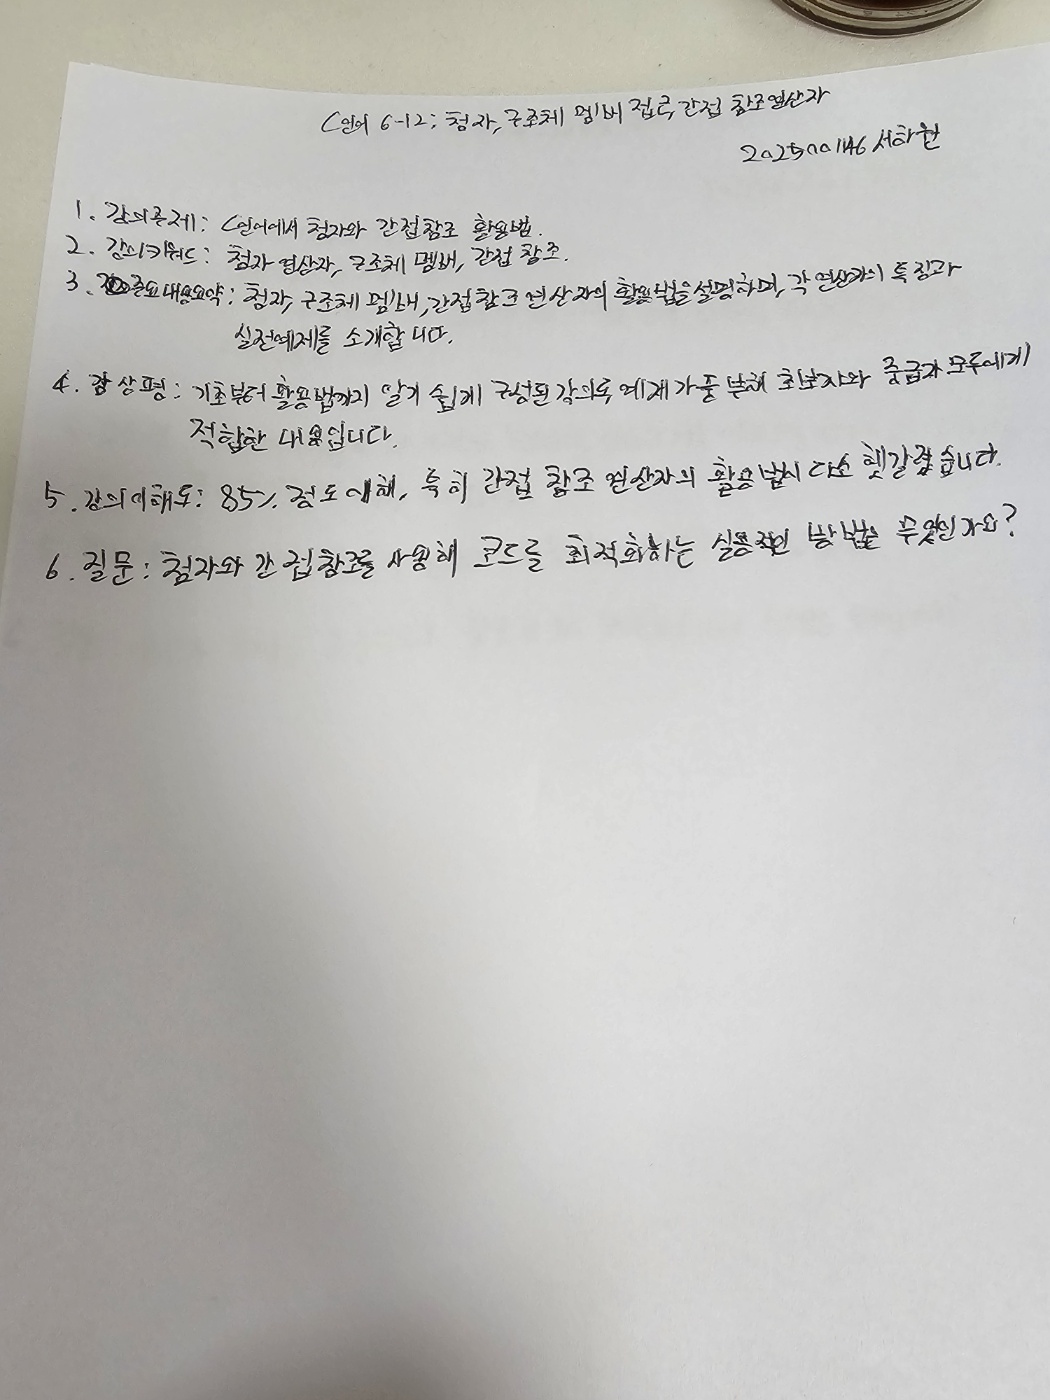 C언어 6-12: 첨자, 구조체 멤버 접근, 간접 참조 연산자
서하원
1. 강의주제: C언어에서 첨자와 간접참조 활용법.
2. 강의키워드: 첨자 연산자, 구조체 멤버, 간접 참조.
3. 주요내용요약: 첨자, 구조체 멤버, 간접 참조 연산자의 활용법을 설명하며, 각 연산자의 특징과
실전예제를 소개합니다.
4. 감상평: 기초부터 활용법까지 알기 쉽게 구성된 강의로 예제가 풍부해 초보자와 중급자 모두에게
적합한 내용입니다.
5. 강의이해도: 85% 정도 이해, 특히 간접 참조 연산자의 활용법이 다소 헷갈렸습니다.
6. 질문: 첨자와 간접참조를 사용해 코드를 최적화하는 실용적인 방법은 무엇인가요?